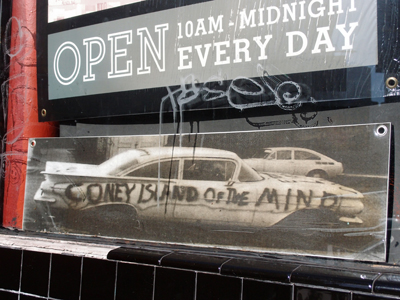 OPEN 10AM - MIDNIGHT
EVERY DAY
CONEY ISLAND OF THE MIND